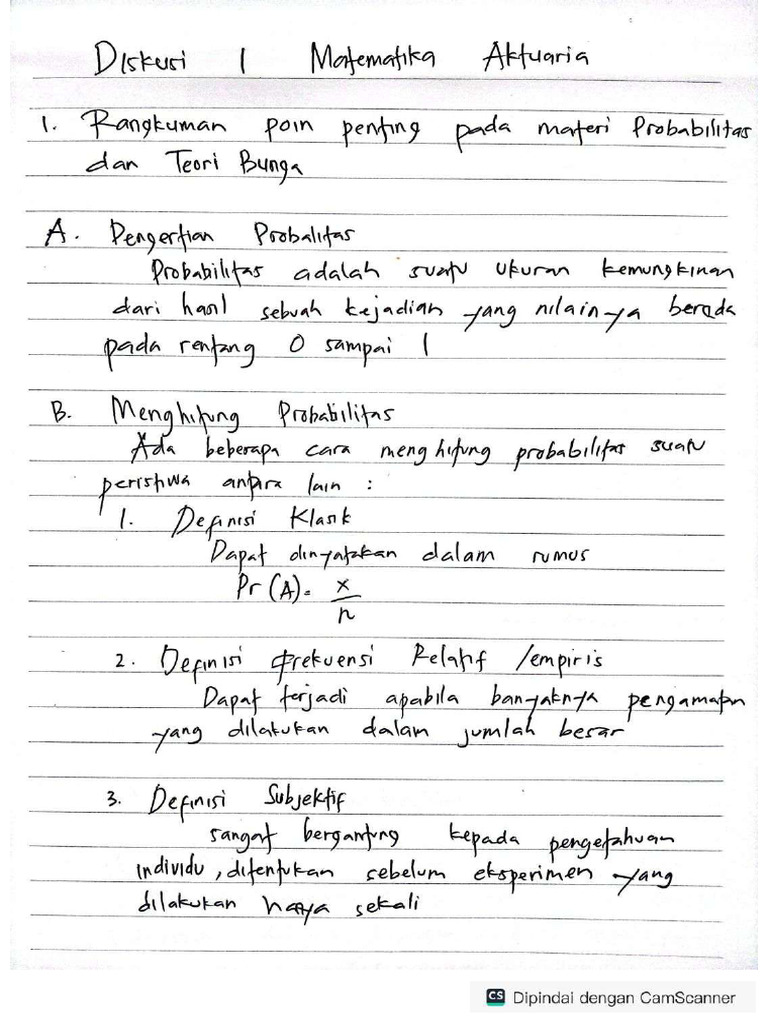 Diskusi 1 Matematika Aktuaria
1. Rangkuman poin penting pada materi Probabilitas
dan Teori Bunga
A. Pengertian Probalitas
Probabilitas adalah suatu ukuran kemungkinan
dari hasil sebuah kejadian yang nilainya berada
pada rentang 0 sampai 1
B. Menghitung Probabilitas
Ada beberapa cara menghitung probabilitas suatu
peristiwa antara lain :
1. Definisi Klasik
Dapat dinyatakan dalam rumus
Pr (A) = x
n
2. Definisi frekuensi Relatif /empiris
Dapat terjadi apabila banyaknya pengamatan
yang dilakukan dalam jumlah besar
3. Definisi Subjektif
sangat bergantung kepada pengetahuan
individu, ditentukan sebelum eksperimen yang
dilakukan hanya sekali
CS Dipindai dengan CamScanner